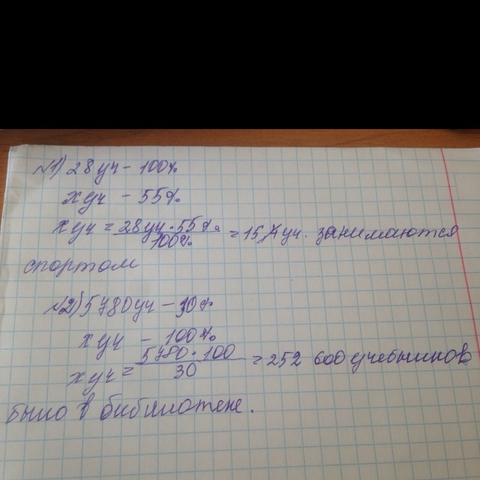 №1) 28 уч - 100%
x уч - 55%
x уч = 28 уч · 55% / 100% = 15,4 уч. занимаются
спортом
№2) 5780 уч - 30%
x уч - 100%
x уч = 5780 · 100 / 30 = 252 600 учебников
было в библиотеке.